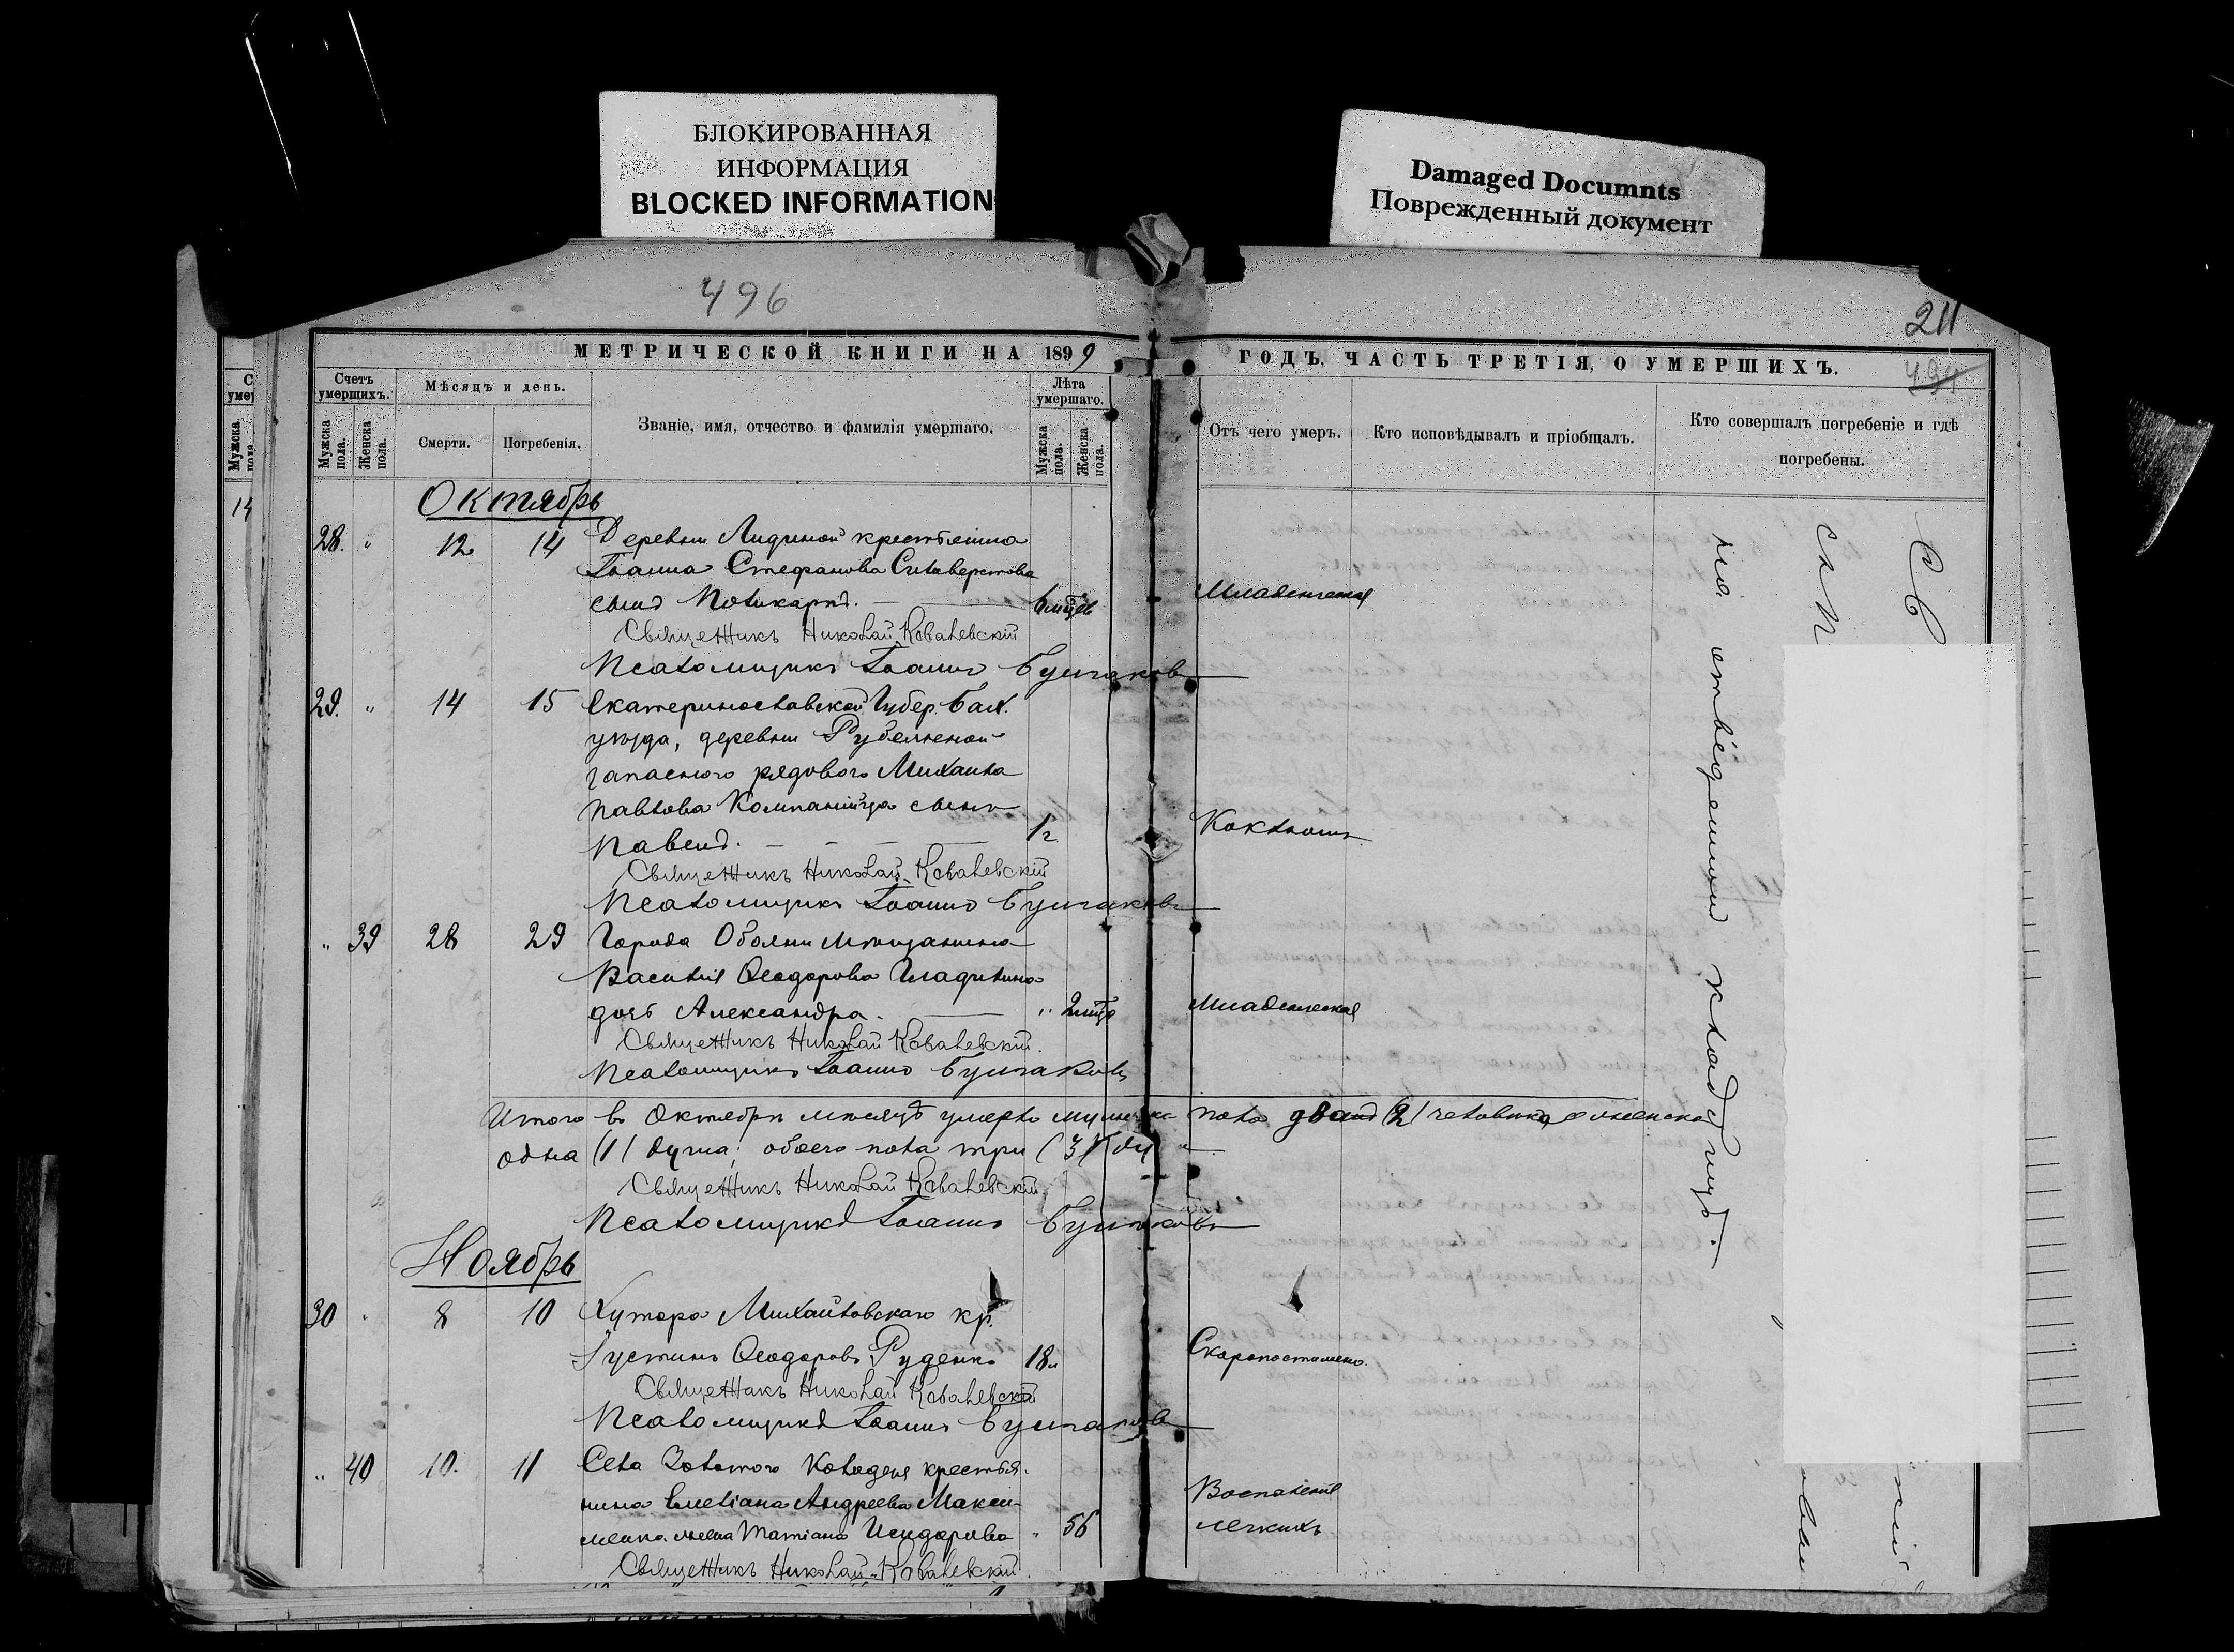 БЛОКИРОВАННАЯ
ИНФОРМАЦИЯ
BLOCKED INFORMATION
Damaged Documnts
Поврежденный документ
496
211
494
МЕТРИЧЕСКОЙ КНИГИ НА 1899
ГОДЪ, ЧАСТЬ ТРЕТІЯ, О УМЕРШИХЪ.
Счетъ умершихъ.
Мѣсяцъ и день.
Званіе, имя, отчество и фамилія умершаго.
Лѣта умершаго.
Мужска пола.
Женска пола.
Смерти.
Погребенія.
Мужска пола.
Женска пола.
Отъ чего умеръ.
Кто исповѣдывалъ и пріобщалъ.
Кто совершалъ погребеніе и гдѣ погребены.
Октябрь
28. " 12 14 Деревни Лидиной крестьянина
Іоанна Стефанова Силаверстова
сынъ Поликарпъ. 6 мцевъ Младенческой
Священникъ Николай Ковалевскій
Псаломщикъ Іоаннъ Булгаковъ
29. " 14 15 Екатеринославской Губер. Бах.
уѣзда, деревни
запаснаго рядового Михаила
Павлова Компанійца сынъ
Павелъ. 1 г. Коклюшъ
Священникъ Николай Ковалевскій
Псаломщикъ Іоаннъ Булгаковъ
" 39 28 29 Города Обояни мѣщанина
Василія Ѳеодорова Гладилина
дочь Александра. " 2 мца Младенческой
Священникъ Николай Ковалевскій.
Псаломщикъ Іоаннъ Булгаковъ
Итого въ Октябрѣ мѣсяцѣ умерло мужска пола два (2) человѣка, женска
одна (1) душа; обоего пола три (3)
Священникъ Николай Ковалевскій
Псаломщикъ Іоаннъ Булгаковъ
Ноябрь
30 " 8 10 Хутора Михайловскаго кр.
Іустинъ Ѳеодоровъ Руденко 18 л Скоропостижно.
Священникъ Николай Ковалевскій
Псаломщикъ Іоаннъ Булгаковъ
" 40 10. 11 Села Золотого Колодезя крестья-
нина Емеліана Андреева Макси-
менко жена Татіана Исидорова " 56 Воспаленіе легкихъ
Священникъ Николай Ковалевскій.
на отведенномъ кладбищѣ.
14